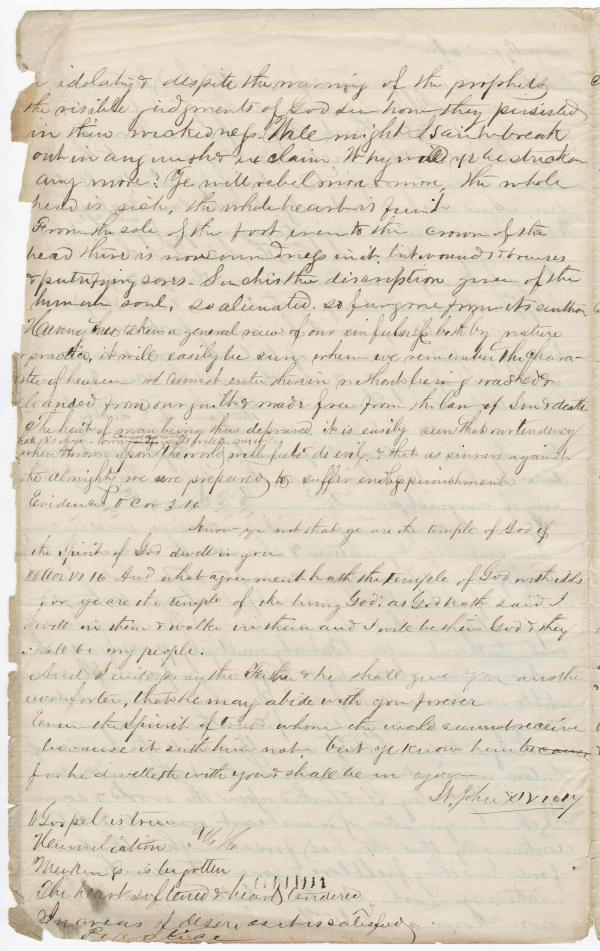 idolatry & despite the warning of the prophets
the visible judgments of God see how they persisted
in their wickedness. Well might Isaiah break
out in anguish & exclaim Why will ye be stricken
any more? Ye will rebel more & more, the whole
head is sick, the whole heart is faint
From the sole of the foot even to the crown of the
head there is no soundness in it, but wounds & bruises
& putrifying sores. Such is the discription given of the
human soul, so alienated. so far gone from its author
Having thus taken a general view of our sinfulness both by nature
& practice, it will easily be seen when we remember the chara-
cter of heaven we cannot enter therein without being washed &
cleansed from our guilt & made free from the law of Sin & death
The heart of man being thus depraved it is easily seen that our tendency
when thrown upon the world will be to do evil, & that as sinners against
the almighty we are prepared to suffer endless punishment
Evidence Cor 3.16
Know ye not that ye are the temple of God &
the Spirit of God dwell in you
Cor VI 16 And what agreement hath the temple of God with idols
for ye are the temple of the living God; as God hath said I
dwell in them & walk in them and I will be their God & they
shall be my people.
And I will pray the Father & he shall give you another
comforter, that he may abide with you forever
Even the Spirit of truth whom the world cannot receive
because it seeth him not, but ye know him because
for he dwelleth with you & shall be in you
St. John XIV 16 17
Gospel is true
Humiliation
Meekness is begotten
The heart softened & heart tendered
Increas of desire as it is satisfied